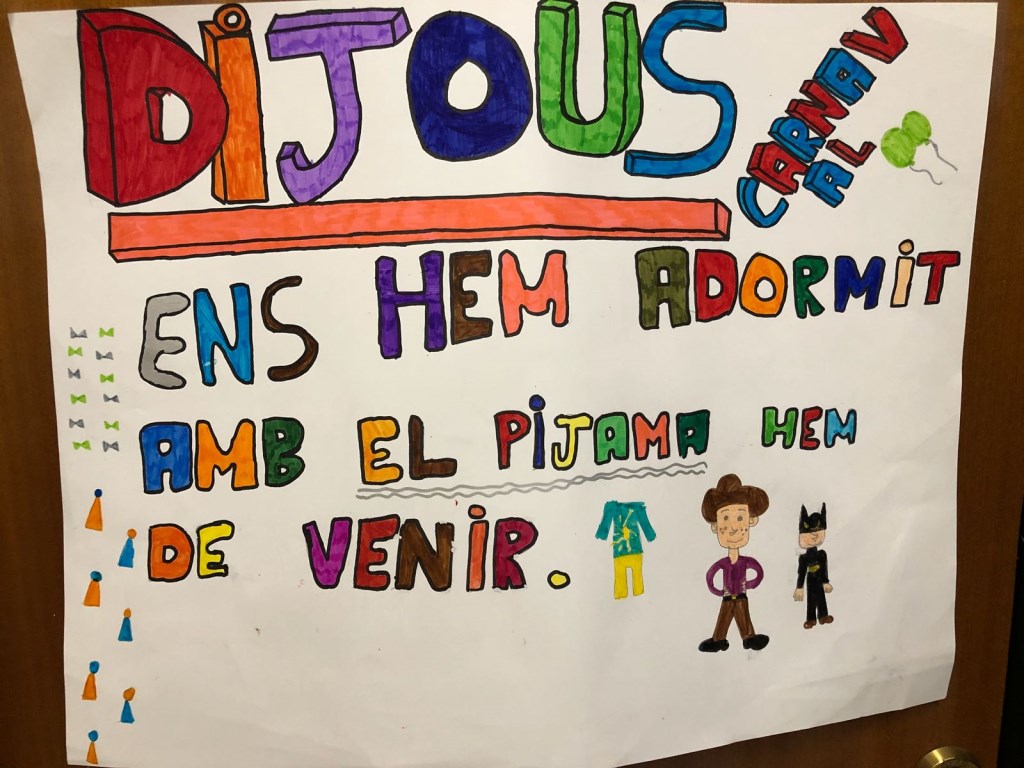 DiJOUS
CARNAV
AL
ENS HEM ADORMiT
AMB EL PiJAMA HEM
DE VENiR.